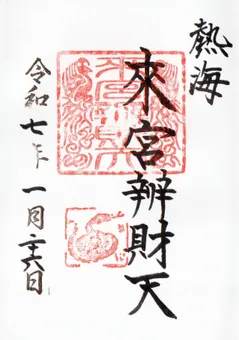 熱海
來宮辨財天
令和七年一月二十六日